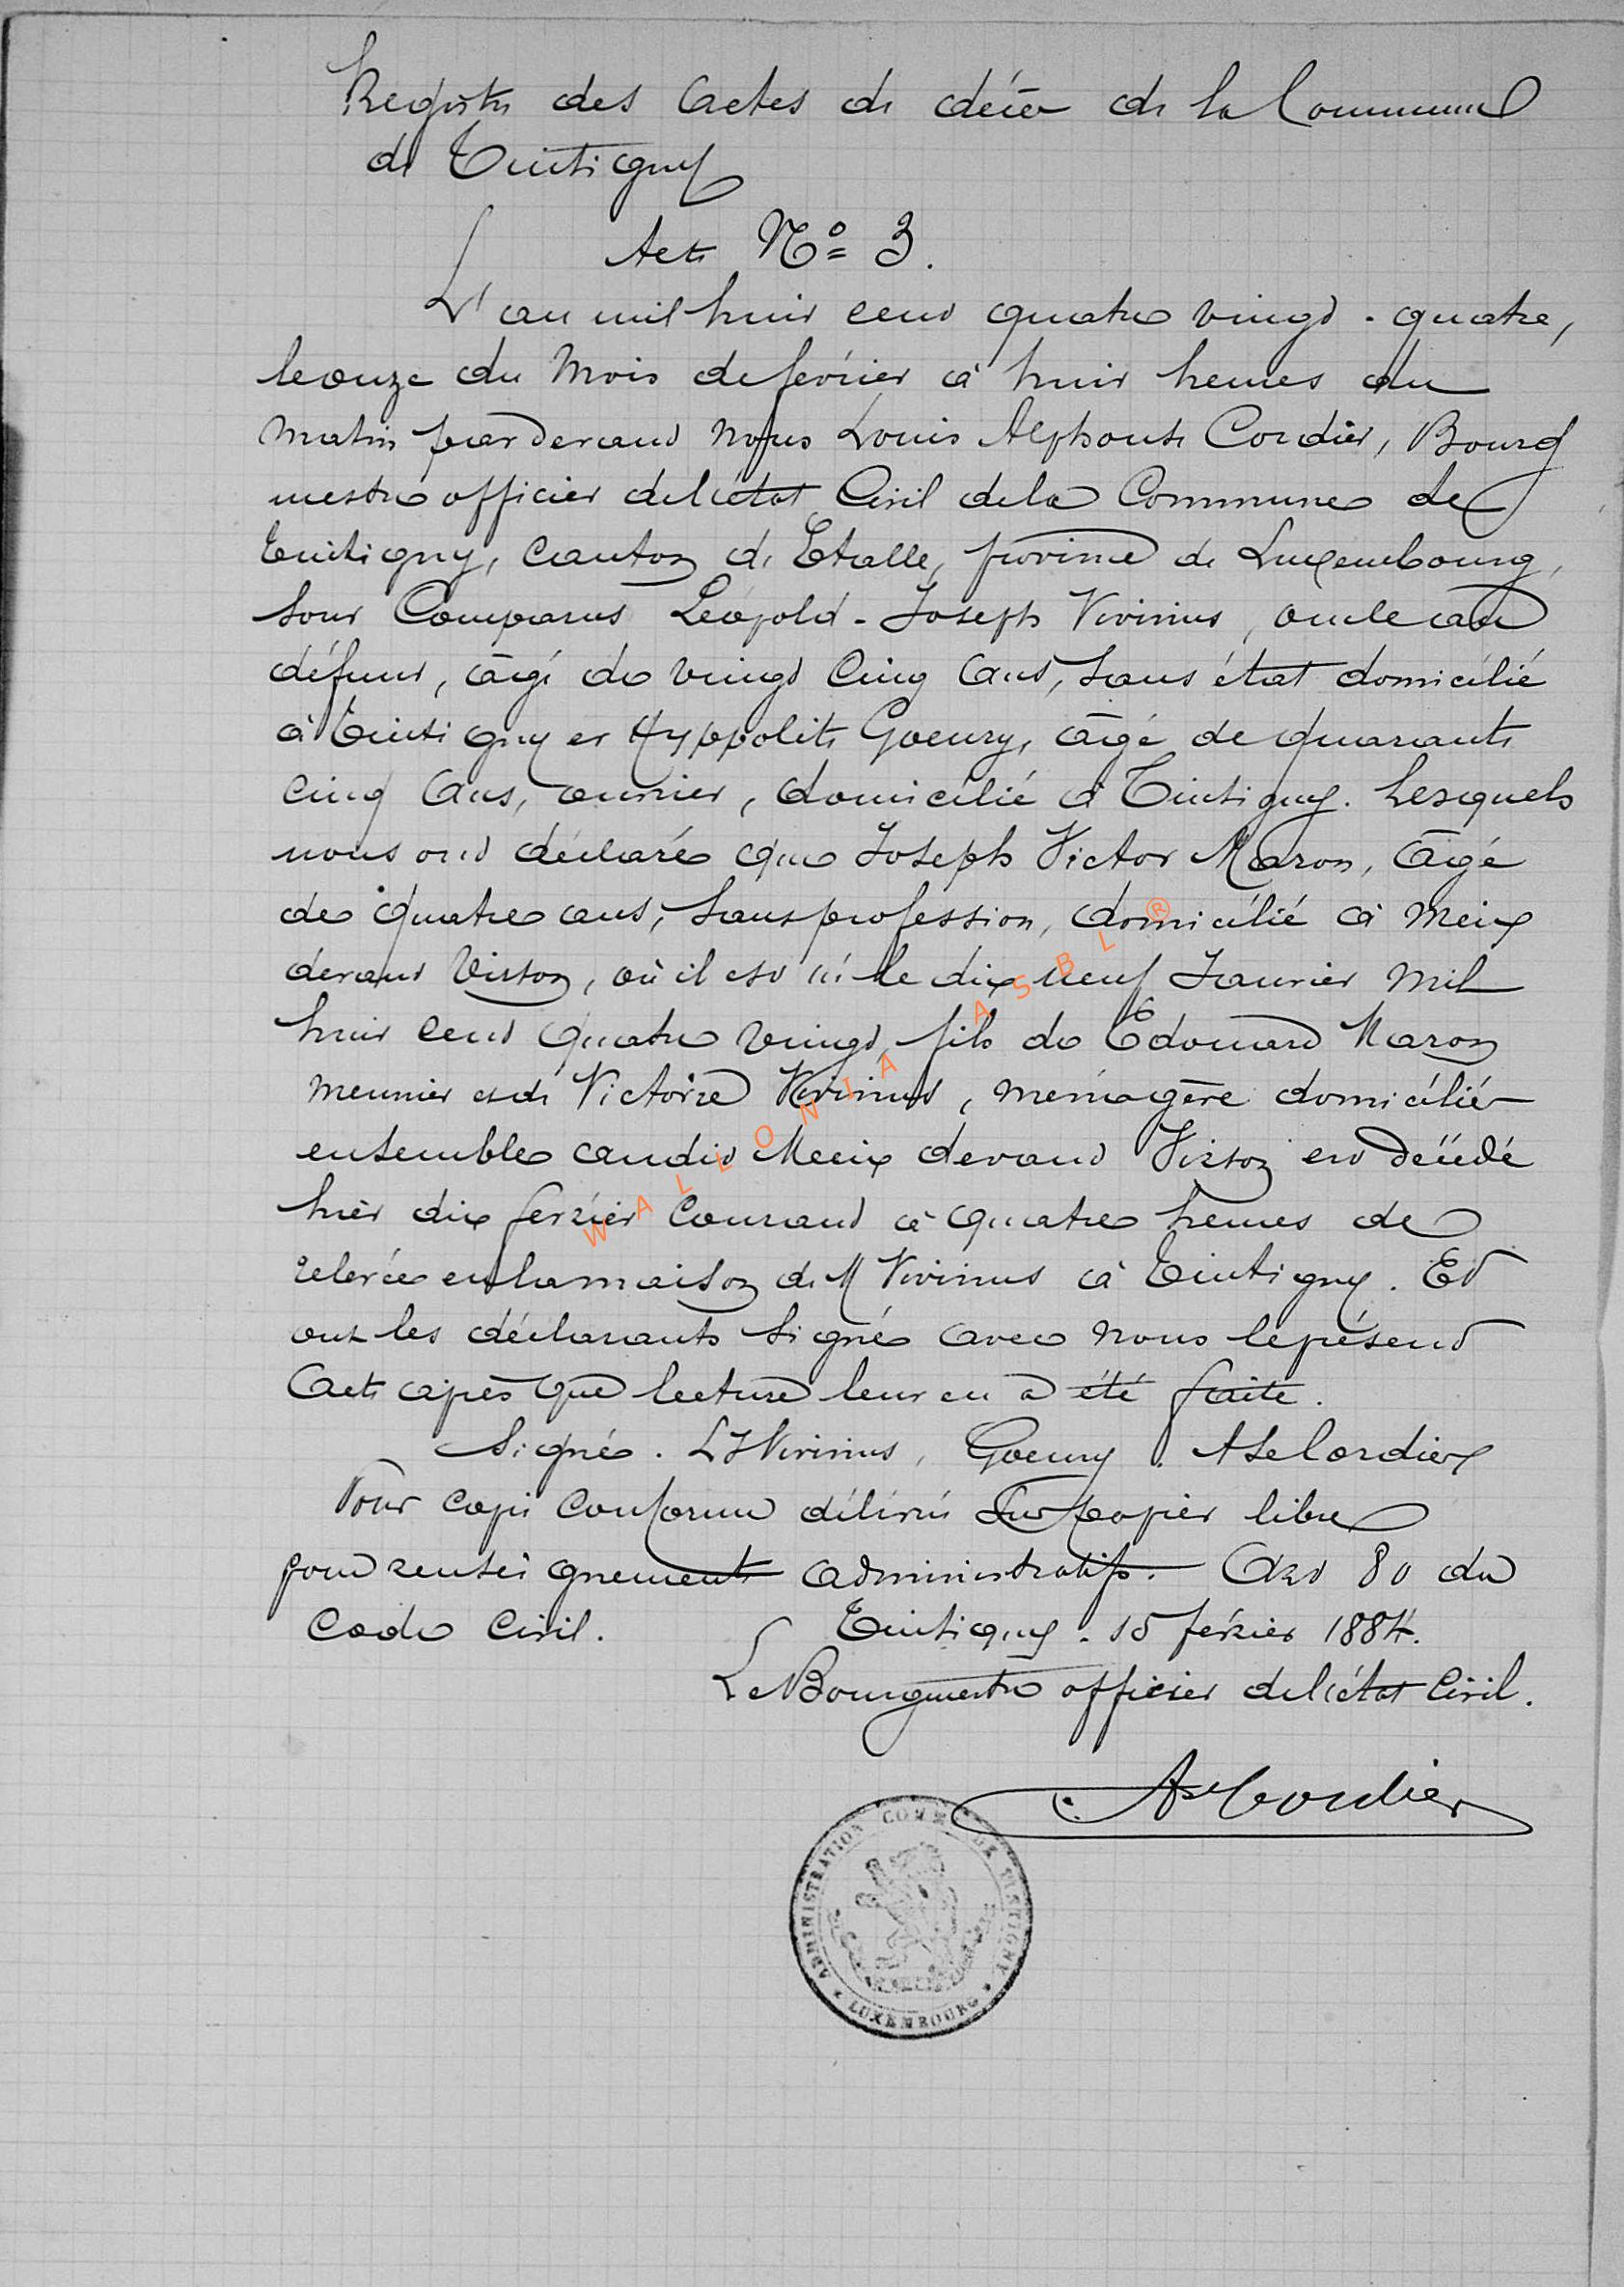 Registre des actes de décès de la Commune
de Tintigny
Acte Nº 3.
L'an mil huit cent quatre vingt-quatre,
le onze du mois de février à huit heures du
matin pardevant nous Louis Alphonse Cordier, Bourg
mestre officier de l'état Civil de la Commune de
Tintigny, canton de Etalle, province de Luxembourg,
sont Comparus Léopold-Joseph Vivinus, oncle au
défunt, âgé de vingt cinq ans, sans état domicilié
à Tintigny et Hyppolite Goeury, âgé de quarante
cinq ans, ouvrier, domicilié à Tintigny. Lesquels
nous ont déclaré que Joseph Victor Maron, âgé
de quatre ans, sans profession, domicilié à Meix
devant Virton, où il est né le dix neuf Janvier mil
huit cent quatre vingt, fils de Edouard Maron
meunier et de Victoire Vivinus, ménagère domiciliés
ensemble audit Meix devant Virton est décédé
hier dix février Courant à quatre heures de
relevée en la maison de M Vivinus à Tintigny. Et
ont les déclarants signé avec nous le présent
acte après que lecture leur en a été faite.
Signé. LJ Vivinus, Goeury. Alse Cordier
Pour copie conforme délivrée sur papier libre
pour renseignements administratifs. Art 80 du
Code Civil. Tintigny. 15 février 1884.
Le Bourgmestre officier de l'état Civil.
Alse Cordier
ADMINISTRATION COMMle DE TINTIGNY
LUXEMBOURG
WALLONIA ASBL ®